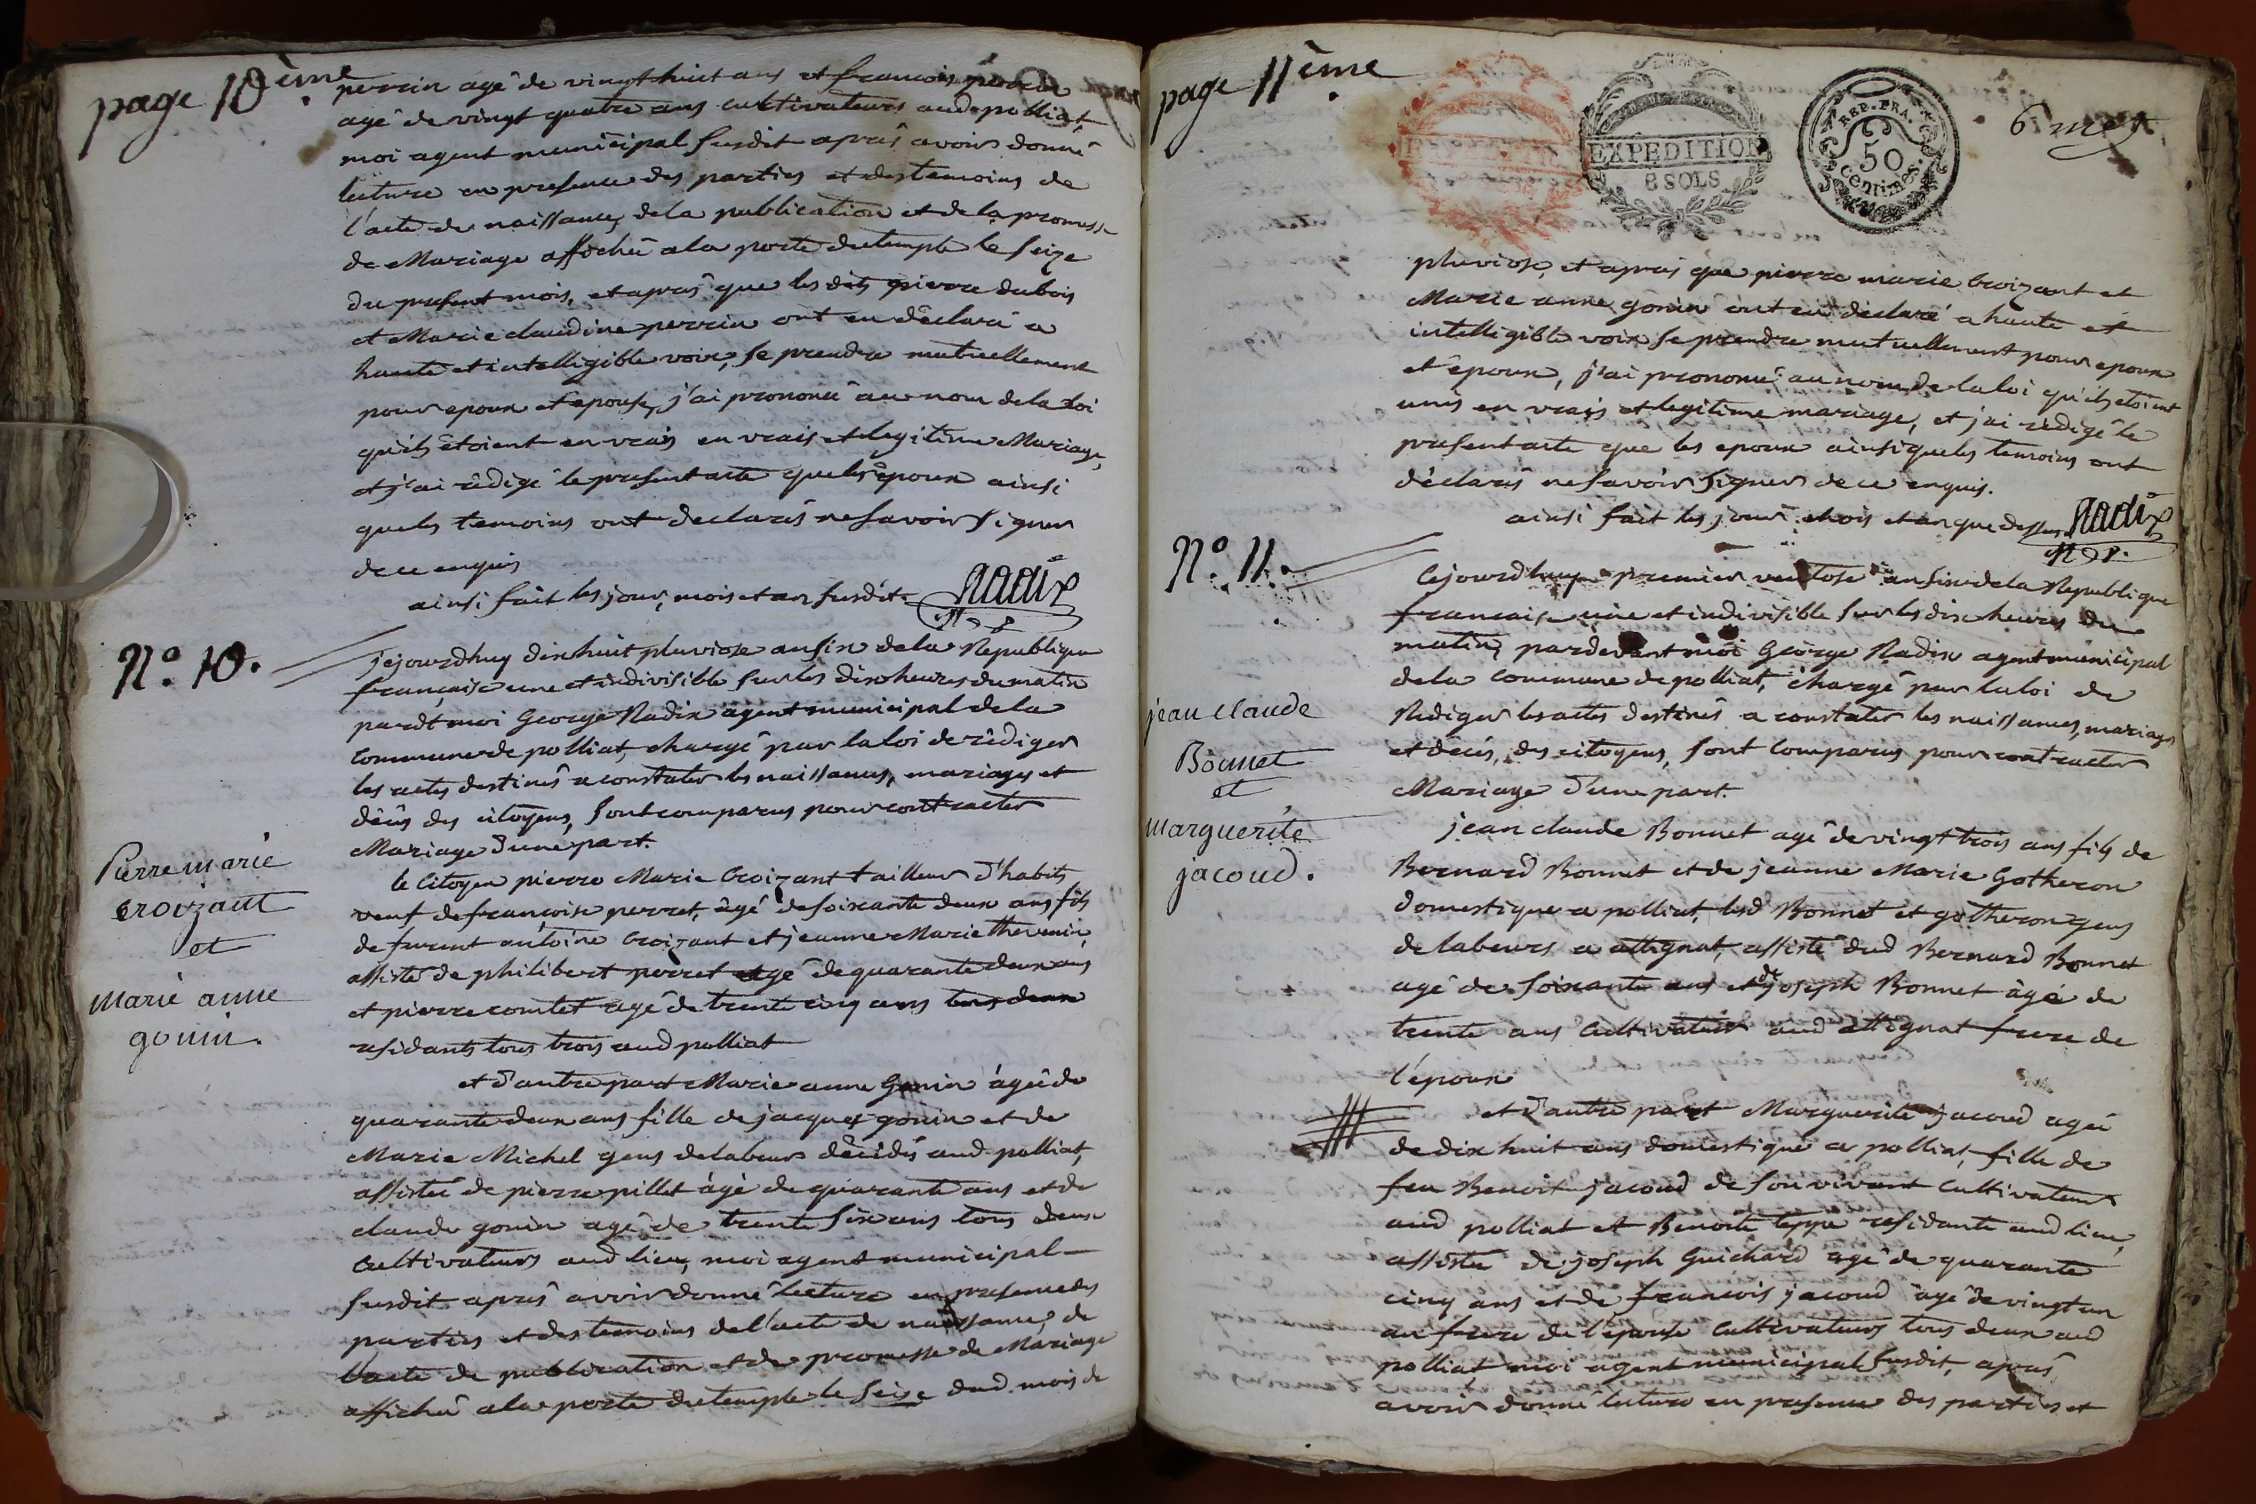 page 10ème
perrin agé de vingt huit ans et francois perrin
agé de vingt quatre ans cultivateurs aud polliat,
moi agent municipal susdit aprés avoir donné
lecture en presence des parties et des temoins de
l'acte de naissance, de la publication et de la promesse
de Mariage affiché a la porte du temple le seize
du present mois, et aprés que les dits pierre dubois
et Marie claudine perrin ont eu déclaré a
haute et intelligible voix, se prendre mutuellement
pour epoux et epouse, j'ai prononcé au nom de la loi
qu'ils étoient en vrais en vrais et legitime Mariage,
et j'ai rédigé le present acte que les epoux ainsi
que les temoins ont declarés ne savoir signer
de ce enquis
ainsi fait les jour, mois et an susdit. Nadix
No. 10.
jejourdhuy dix huit pluviose an six de la Republique
française une et indivisible sur les dix heures du matin
pardt moi George Nadix agent municipal de la
commune de polliat, chargé par la loi de rédiger
les actes destinés a constater les naissances, mariages et
décés des citoyens, sont comparus pour contracter
Mariage d'une part.
Pierre marie
croizant
et
marie anne
gonin.
le Citoyen pierre Marie Croizant tailleur d'habits
veuf de françoise perret, âgé de soixante deux ans fils
de furent antoine Croizant et jeanne Marie thevenin,
assisté de philibert perret agé de quarante deux ans
et pierre comtet agé de trente cinq ans tous deux
residants tous trois aud polliat
et d'autre part Marie anne Gonin âgée de
quarante deux ans fille de jacques gonin et de
Marie Michel gens de labeur décédés aud polliat,
assistée de pierre pillet âgé de quarante ans et de
claude gonin agé de trente six ans tous deux
cultivateurs aud lieu, moi agent municipal
susdit aprés avoir donné lecture en presence des
parties et des temoins de l'acte de naissance, de
l'acte de publication et de promesse de Mariage
affiché a la porte du temple le seize dud mois de
page 11ème
EXPEDITION
8 SOLS
REP. FRA.
50
centimes.
pluviose, et aprés que pierre marie Croizant et
Marie anne gonin ont eu déclaré a haute et
intelligible voix se prendre mutuellement pour epoux
et époux, j'ai prononcé au nom de la loi qu'ils étoient
unis en vrais et legitime mariage, et j'ai rédigé le
present acte que les epoux ainsi que les temoins ont
déclarés ne savoir signer de ce enquis.
ainsi fait les jour mois et an que dessus Nadix
No. 11.
Cejourdhuy premier ventose an six de la Republique
francaise une et indivisible sur les dix heures du
matin, pardevant moi George Nadix agent municipal
de la commune de polliat, chargé par la loi de
Rediger les actes destinés a constater les naissances, mariages
et décés, des citoyens, sont comparus pour contracter
Mariage d'une part.
jean claude
Bonnet
et
marguerite
jacoud.
jean claude Bonnet agé de vingt trois ans fils de
Bernard Bonnet et de jeanne Marie Gotheron
domestique a polliat, lesd Bonnet et gotheron gens
de labeurs a attignat, assisté dud Bernard Bonnet
agé de soixante ans et de joseph Bonnet âgé de
trente ans cultivateur aud attignat frere de
l'époux
et d'autre part Marguerite jacoud agée
de dix huit ans domestique a polliat, fille de
feu Benoit jacoud de son vivant cultivateur
aud polliat et Benoite teppe residante aud lieu,
assistée de joseph Guichard agé de quarante
cinq ans et de francois jacoud âgé de vingt un
an frere de l'épouse cultivateurs tous deux aud
polliat, moi agent municipal susdit, aprés
avoir donné lecture en presence des parties et